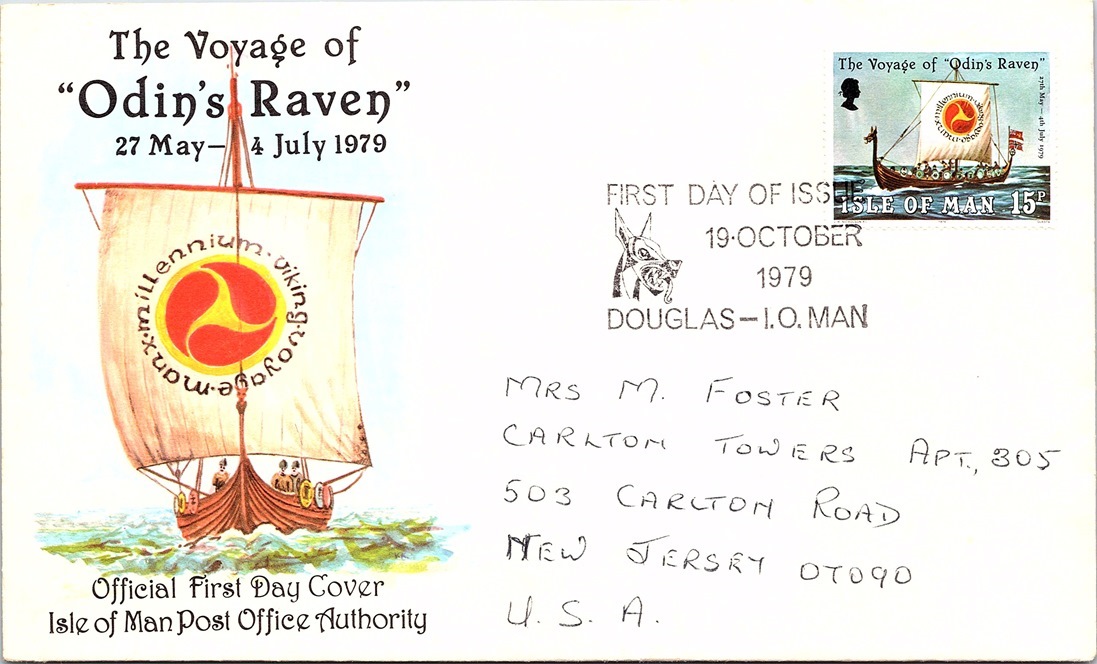 The Voyage of
"Odin's Raven"
27 May — 4 July 1979
manx·millennium·viking·voyage·
Official First Day Cover
Isle of Man Post Office Authority
The Voyage of "Odin's Raven"
27th May — 4th July 1979
manx·millennium·viking·voyage·
ISLE OF MAN 15P
FIRST DAY OF ISSUE
19·OCTOBER
1979
DOUGLAS — I.O. MAN
MRS M. FOSTER
CARLTON TOWERS APT., 305
503 CARLTON ROAD
NEW JERSEY 07090
U. S. A.